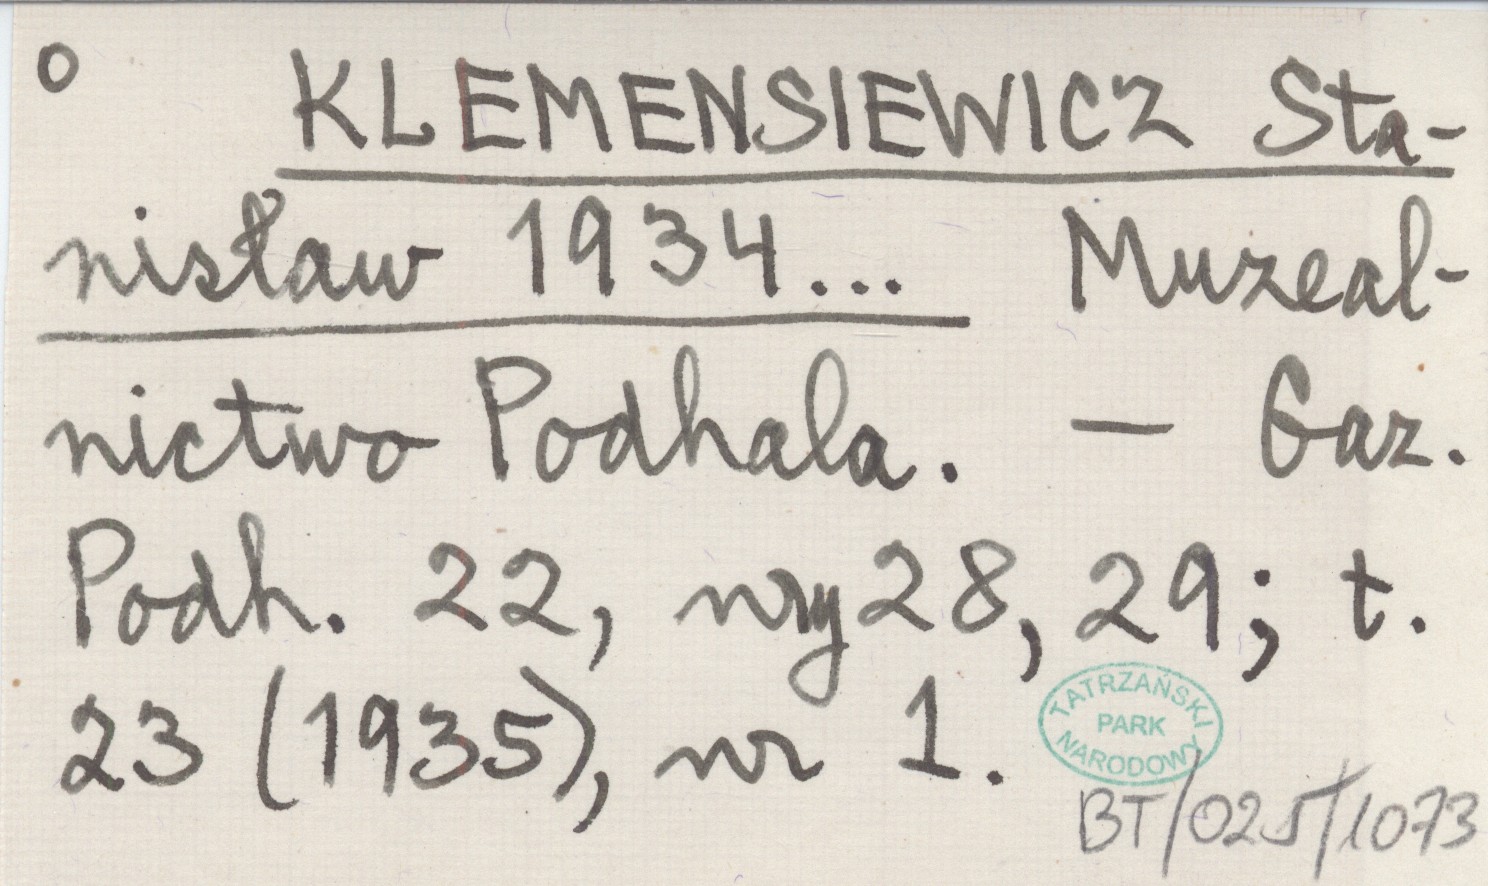 o KLEMENSIEWICZ Sta-
nisław 1934... Muzeal-
nictwo Podhala. — Gaz.
Podh. 22, nry 28, 29; t.
23 (1935), nr 1.
TATRZAŃSKI
PARK
NARODOWY
BT/025/1073